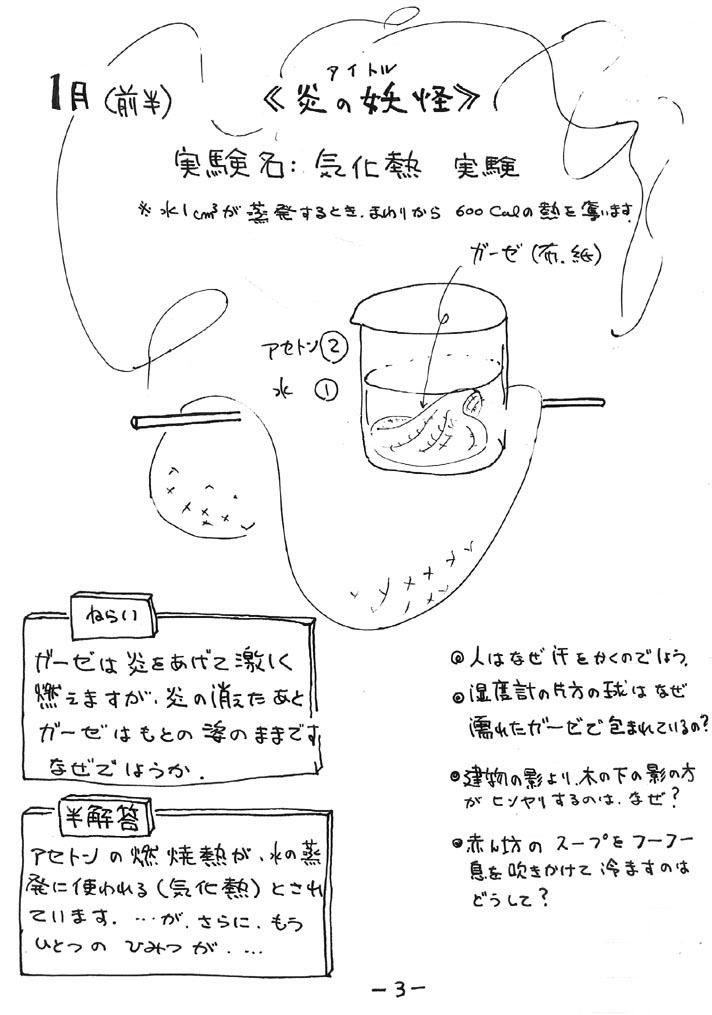 1月(前半)
タイトル
《炎の妖怪》
実験名:気化熱 実験
※水1cm³が蒸発するとき、まわりから 600 Calの熱を奪います。
ガーゼ(布、紙)
アセトン②
水 ①
ねらい
ガーゼは炎をあげて激しく
燃えますが、炎の消えたあと
ガーゼはもとの姿のままです
なぜでしょうか.
半解答
アセトンの燃焼熱が、水の蒸
発に使われる(気化熱)とされ
ています. …が、さらに、もう
ひとつの ひみつが. …
◎人はなぜ汗をかくのでしょう.
◎湿度計の片方の球はなぜ
濡れたガーゼで包まれているの?
◎建物の影より、木の下の影の方
がヒンヤリするのは、なぜ?
◎赤ん坊のスープをフーフー
息を吹きかけて冷ますのは
どうして?
-3-